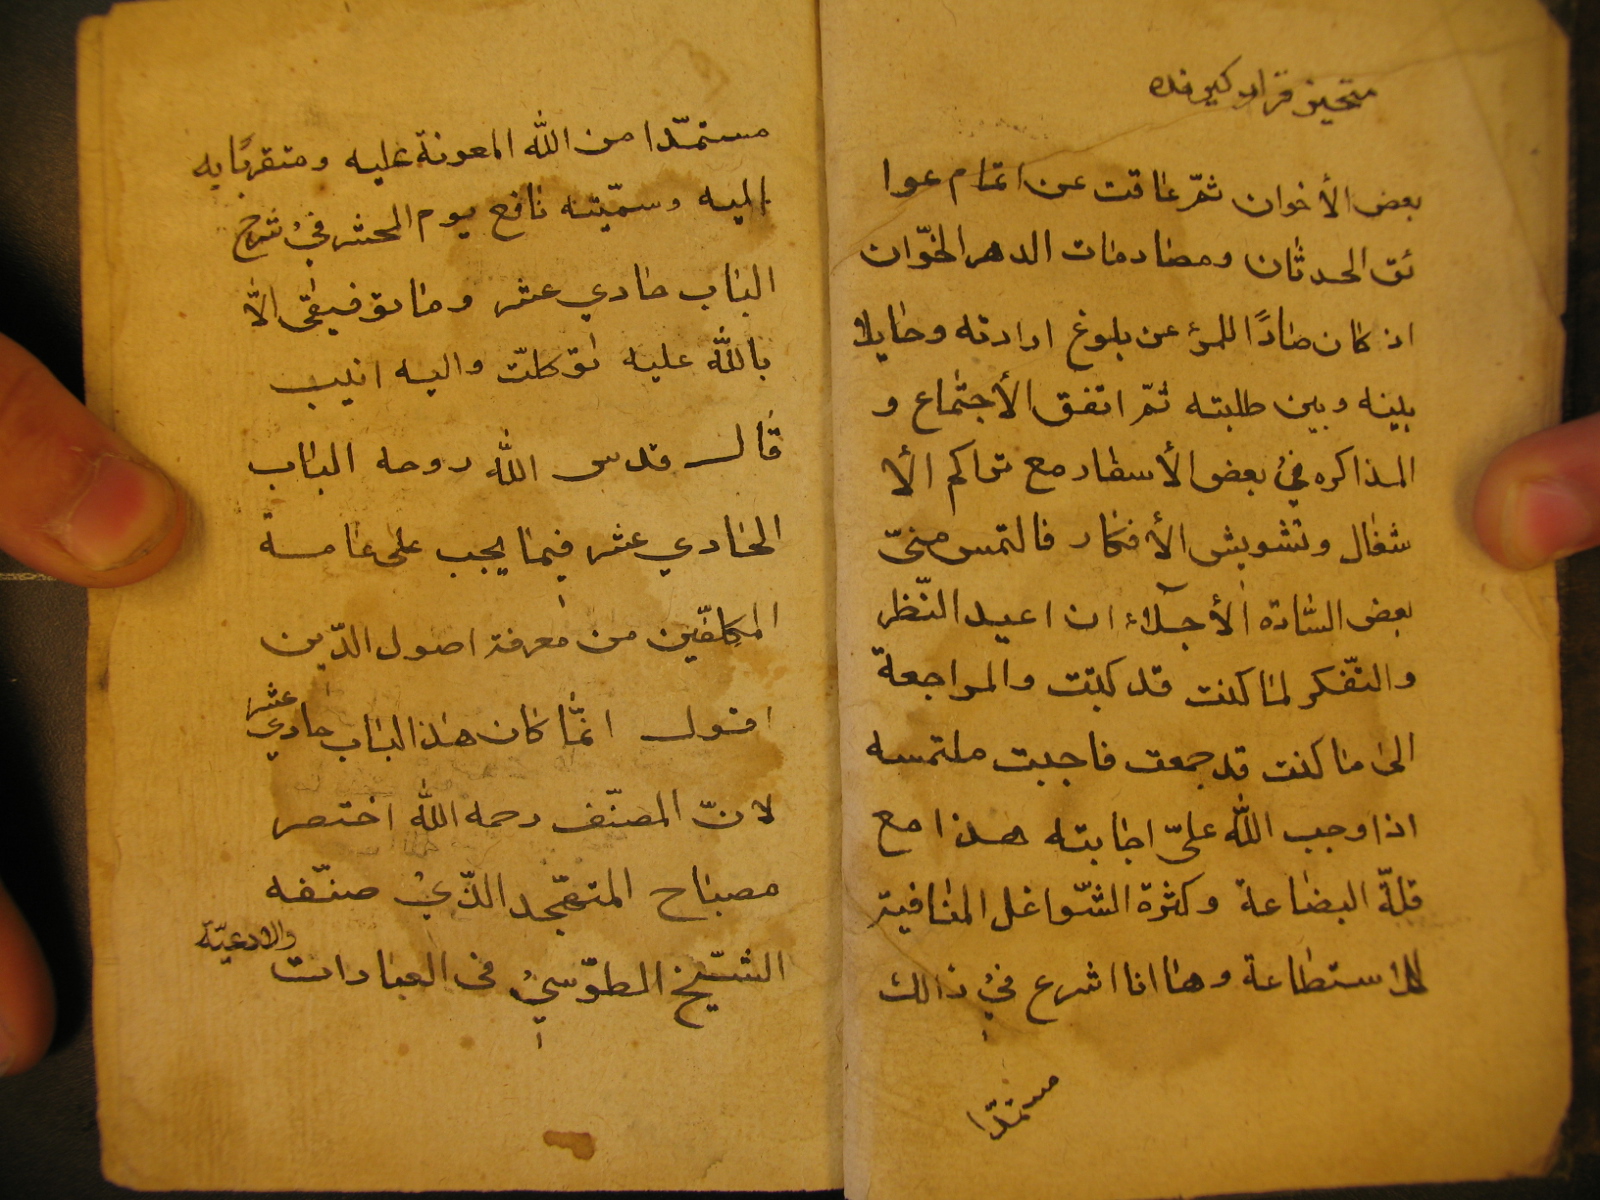 بعض الأخوان ثمّ عاقت عن اتمام عوا
ئق الحدثان ومصادمات الدهر الخوّان
اذ كان صادًا للمرء عن بلوغ ارادته وحايلا
بينه وبين طلبته ثمّ اتفق الأجتماع و
المذاكره في بعض الأسفار مع تراكم الأ
شغال وتشويش الأفكار فالتمس منّي
بعض السّادة الأجلاء ان اعيد النّظر
والتّفكر لما كنت قد كتبت والمراجعة
الى ما كنت قد جمعت فاجبت ملتمسه
اذا وجب الله عليّ اجابته هذا مع
قلّة البضاعة وكثرة الشّواغل المنافية
للاستطاعة وها انا اشرع في ذالك
مستمدّا
مستمدّا من الله المعونة عليه ومتقربًا به
اليه وسمّيته نافع يوم الحشر في شرح
الباب حادي عشر وما توفيقي الّا
بالله عليه توكلت واليه انيب
قال قدس الله روحه الباب
الحادي عشر فيما يجب على عامة
المكلفّين من معرفة اصول الدّين
اقول انّما كان هذا الباب حادي عشر
لانّ المصنّف رحمه الله اختصر
مصباح المتهّجد الّذي صنّفه
الشّيخ الطّوسي في العبادات والادعيّة